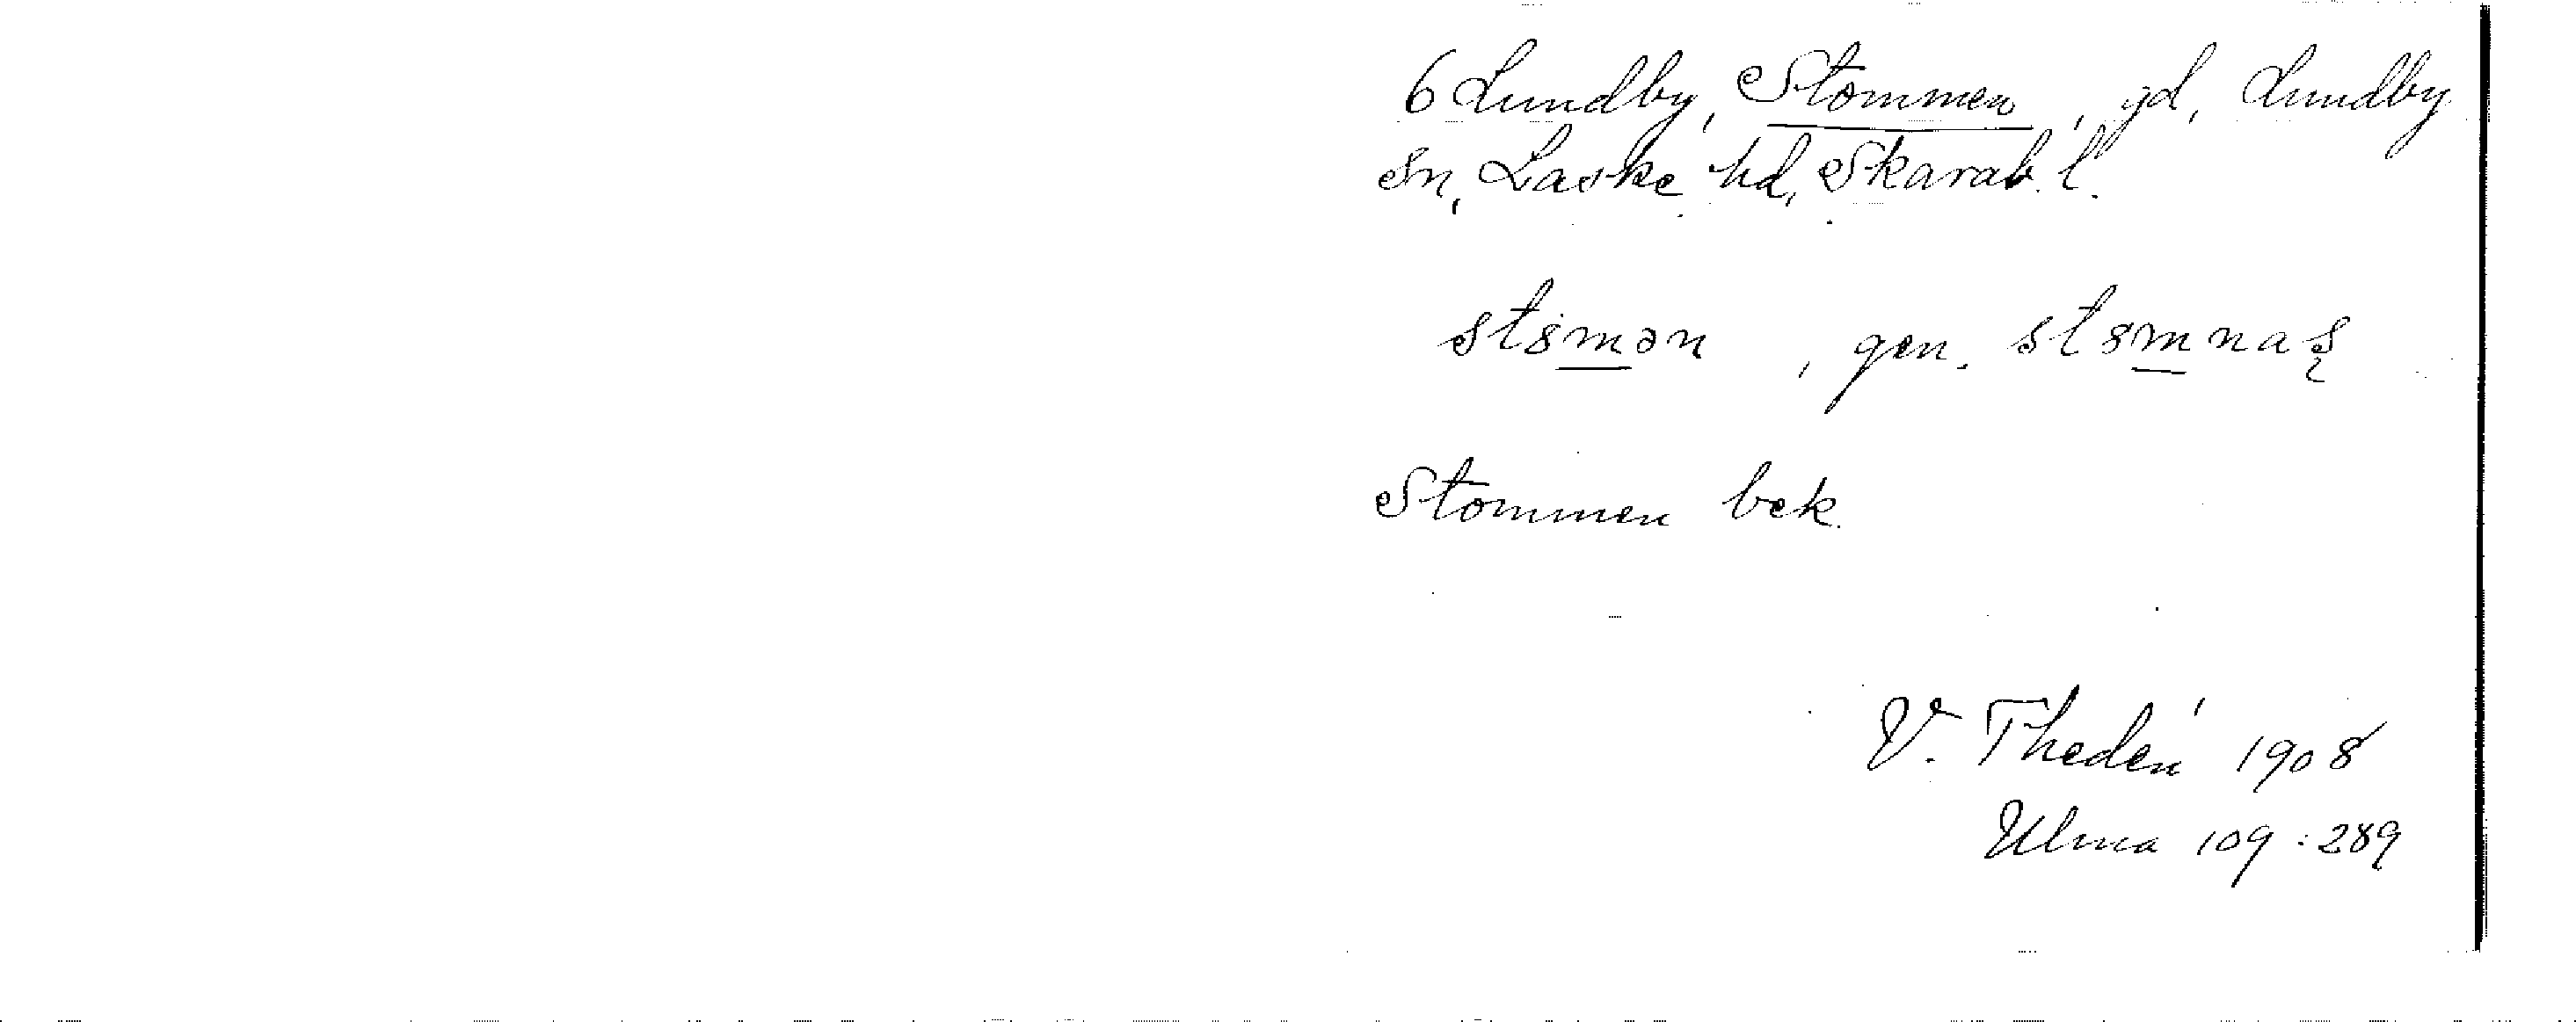 6 Lundby, Stommen, gd, Lundby
sn, Laske hd, Skarab. l.
stȣmən, gen. stȣmnas̨
Stommen bek.
V. Thedén 1908
Ulma 109:289